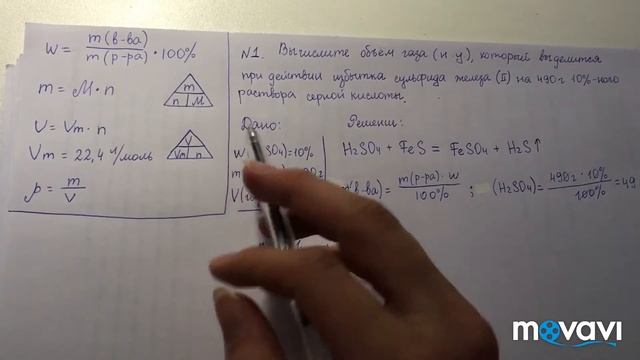 W = m(в-ва) / m(р-ра) · 100%
m = M · n
m
n M
V = Vm · n
Vm = 22,4 л/моль
V
Vm n
ρ = m / V
N1. Вычислите объём газа (н.у), который выделится
при действии избытка сульфида железа (II) на 490г 10%-ного
раствора серной кислоты.
Дано: Решение:
SO4)=10% H2SO4 + FeS = FeSO4 + H2S↑
в-ва) = m(р-ра) · w / 100% ; (H2SO4) = 490г · 10% / 100% = 49
movavi